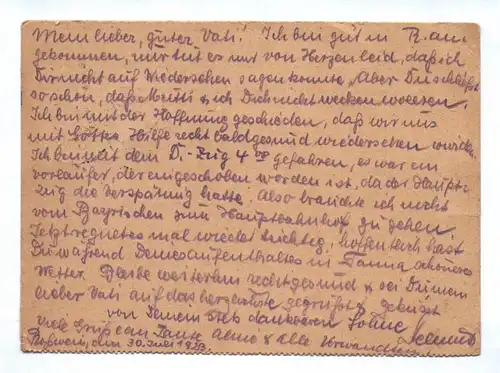 Mein lieber, guter Vati! Ich bin gut in R. an
gekommen, nur tut es mir von Herzen leid, daß ich
Dir nicht auf Wiedersehen sagen konnte, Aber Du schliefst
so schön, daß Mutti u. ich Dich nicht wecken wollten.
Ich bin mit der Hoffnung geschieden, daß wir uns
mit Gottes Hilfe recht bald gesund wiedersehen werden.
Ich bin mit dem D.-Zug 4 gefahren, es war ein
Vorläufer, der eingeschoben worden ist, da der Haupt-
zug die Verspätung hatte. Also brauchte ich nicht
vom Bayrischen zum Hauptbahnhof zu gehen.
Jetzt regnet es mal wieder tüchtig, hoffentlich hast
Du während Deines Aufenthaltes in Tanna schöneres
Wetter. Bleibe weiterhin recht gesund u. sei Du mein
lieber Vati auf das herzlichste gegrüßt u. geküsst
von Deinem Dich dankbaren Sohne Helmut
Viele Grüße an Tante u. alle Verwandten
den 30. Juli